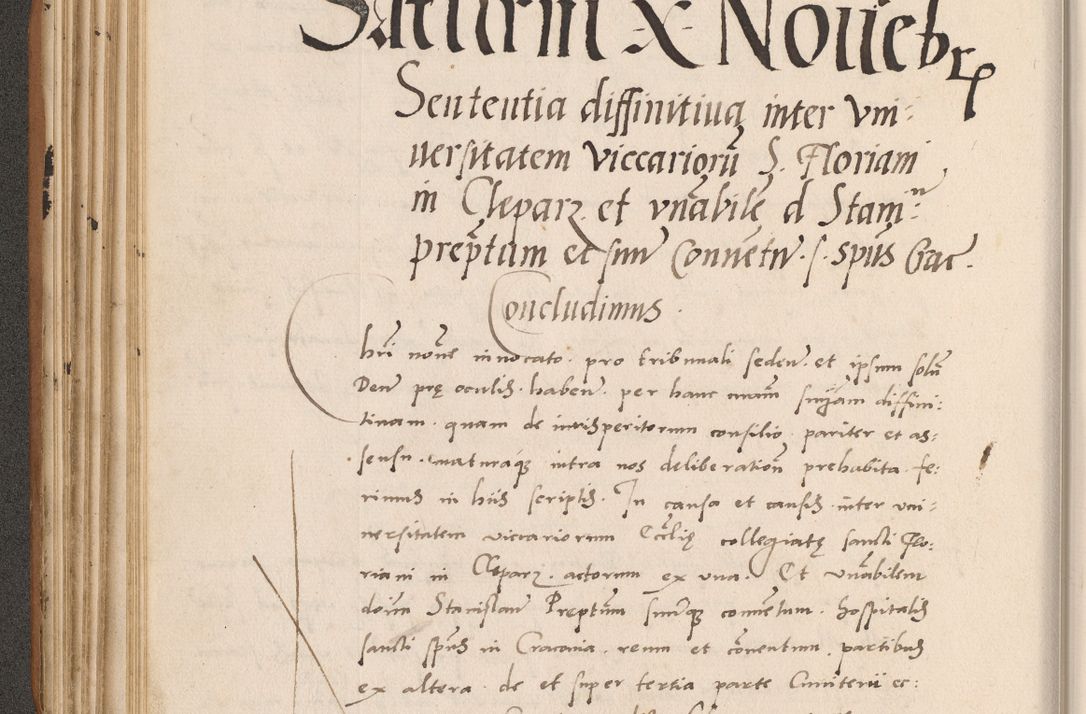 Saturni X Nouēbr
Sententia diffinitiua inter vni:
uersitatem Viccariorū S. Floriani
in Cleparz. et vn̄abilē d Stam:
prep̄tum et sum̄ Conuētū. s. spūs Crac.
Concludimus.
Chri nōīe innocato. pro tribunali seden̄. et ipsum solū
Deū prę oculis. haben̄. per hanc nr̄am sn̄iam diffini:
tiuam. quam de iurisperitorum consilio. pariter et as:
sensu. maturaq̄ intra nos deliberation̄ prehabita. fe:
rimus in hiis scriptis. In causa et causis. inter vni:
uersitatem viccariorum Eccl̄ię collegiatę sancti Flo:
riani in Cleparz. actorum ex vna. Et vn̄abilem
doīm Stanislaū Prep̄tum suumq̄ conuentum. hospitalis
sancti spūs in Cracouia. reum et cōuentum. partibus
ex altera. de et super tertia parte Cimiterii ec: